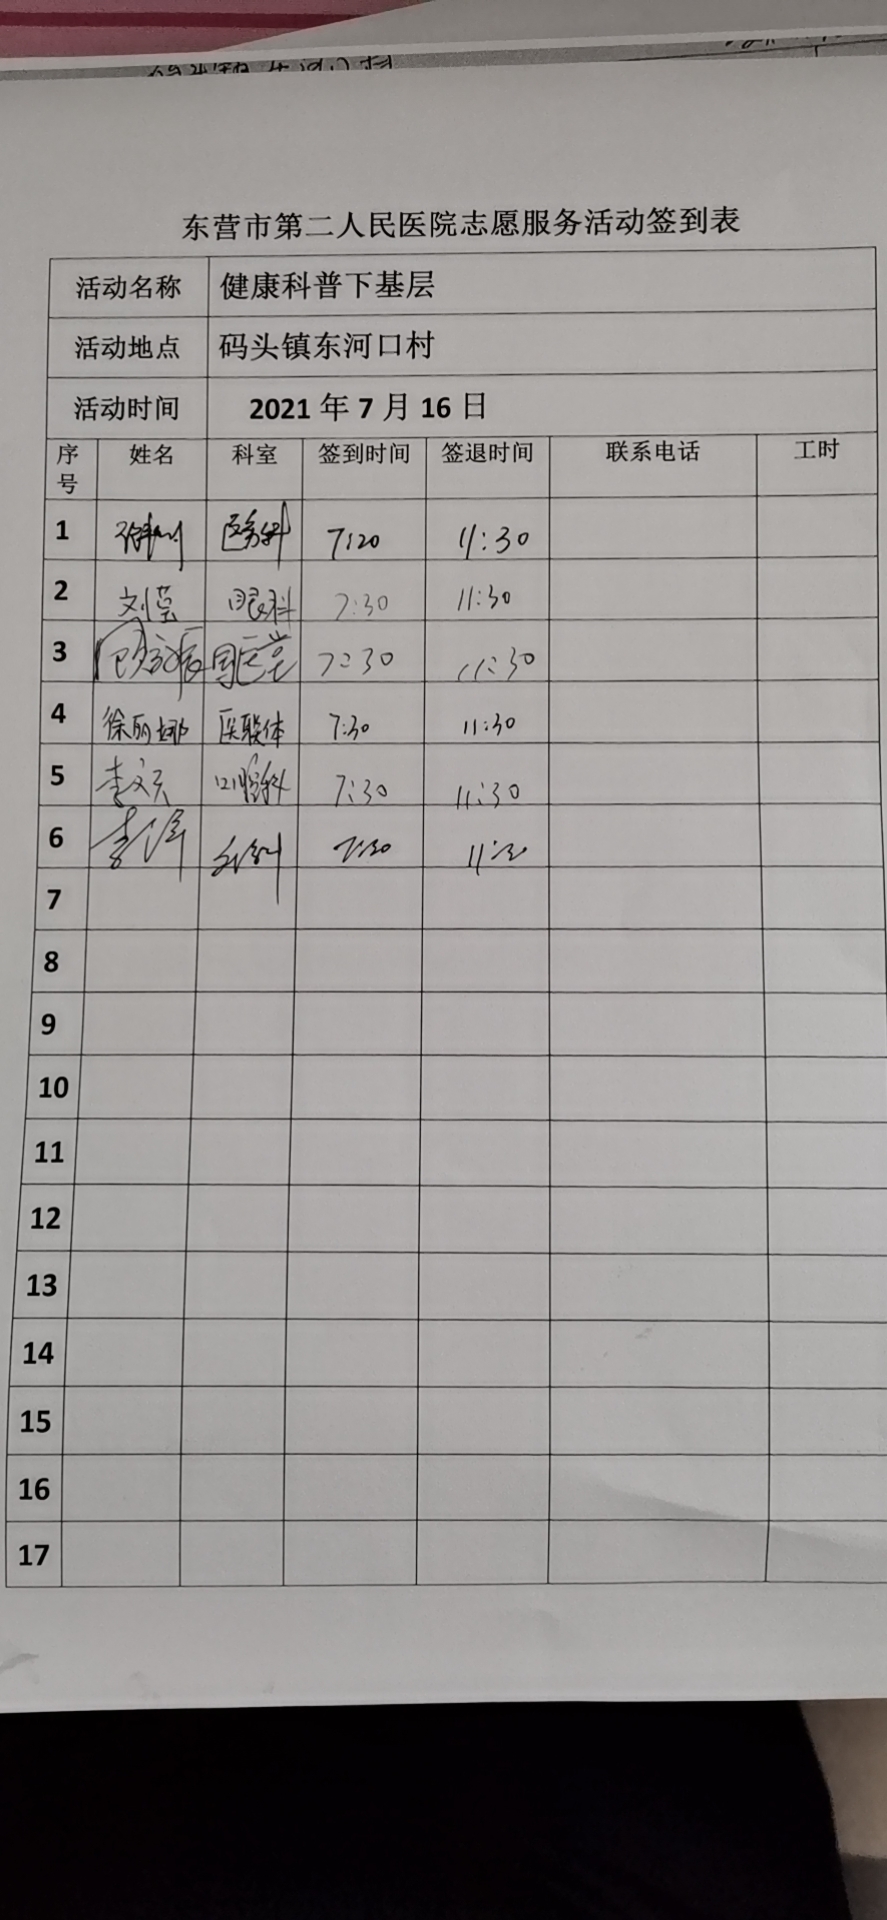 东营市第二人民医院志愿服务活动签到表
活动名称 健康科普下基层
活动地点 码头镇东河口村
活动时间 2021 年 7 月 16 日
序号 姓名 科室 签到时间 签退时间 联系电话 工时
1 医务科 7:20 11:30
2 刘莹 眼科 7:30 11:30
3 国医堂 7:30 11:30
4 徐丽娜 医联体 7:30 11:30
5 李文 口腔科 7:30 11:30
6 李 7:30 11:30
7
8
9
10
11
12
13
14
15
16
17